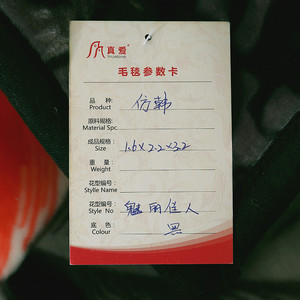 真爱®
毛毯参数卡
品 种: 仿韩
Product
原料规格:
Material Spc
成品规格: 1.6×2.2×3.2
Size
重 量:
Weight
花型编号:
Stylle Name
花型编号: 魅丽佳人
Style No
底 色 黑
Colour